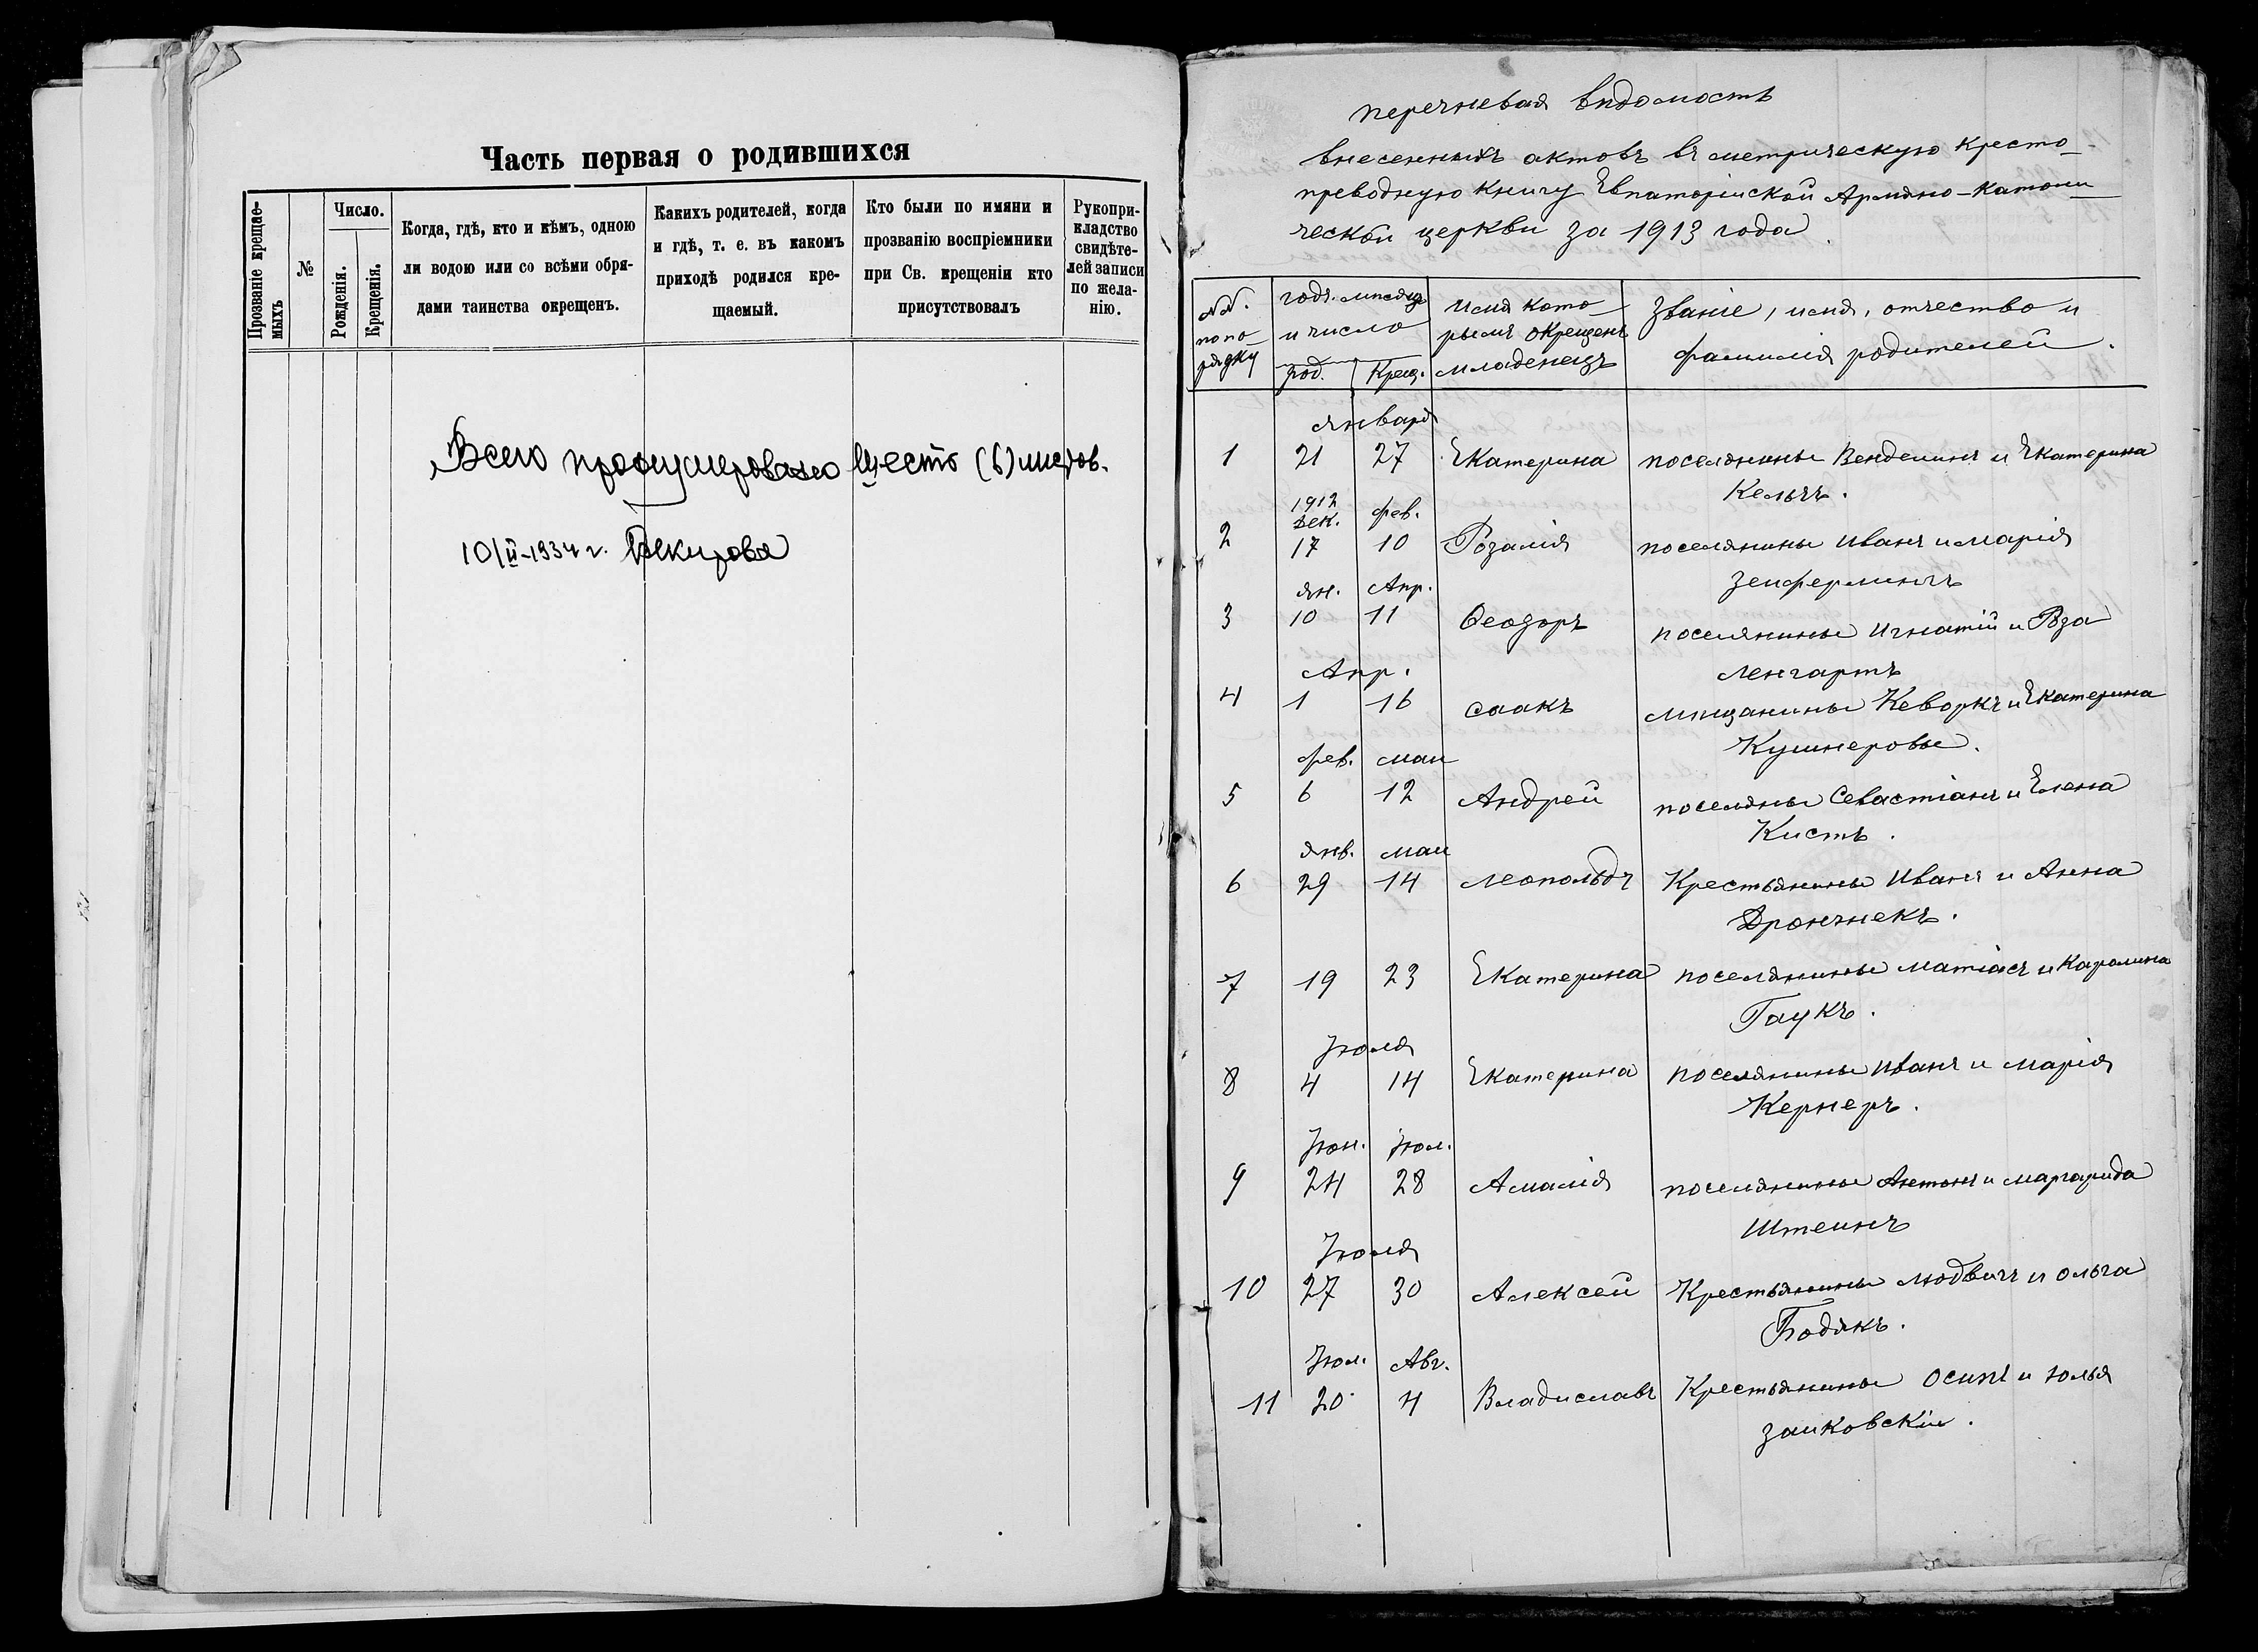 Часть первая о родившихся
Прозваніе крещае-
мыхъ
№
Число.
Рожденія.
Крещенія.
Когда, гдѣ, кто и кѣмъ, одною
ли водою или со всѣми обря-
дами таинства окрещенъ.
Какихъ родителей, когда
и гдѣ, т. е. въ какомъ
приходѣ родился кре-
щаемый.
Кто были по имяни и
прозванію воспріемники
при Св. крещеніи кто
присутствовалъ
Рукопри-
кладство
свидѣте-
лей записи
по жела-
нію.
Всего пронумеровано шесть (6) листов.
10/II-1934 г.
перечневая вѣдомость
внесенныхъ актовъ въ метрическую кресто-
преводную книгу Евпаторійской Армяно-Катони-
ческой церкви за 1913 года.
№№.
по по-
рядку
годъ. мѣсяцъ
и число
род. Крещ.
имя кото-
рымъ окрещенъ
младенецъ
Званіе, имя, отчество и
фамилія родителей.
января
1 21 27 Екатерина поселянины Венделинъ и Екатерина
Кельчъ.
1912
Дек. фев.
2 17 10 Розалія поселянины Иванъ и Марія
Зенферлингъ
ян. Апр.
3 10 11 Феодоръ поселянины Игнатій и Роза
Ленгартъ
Апр.
4 1 16 Саакъ мѣщанины Кеворкъ и Екатерина
Кушнеровы.
фев. маи
5 6 12 Андрей поселяны Севастіанъ и Елена
Кистъ.
янв. маи
6 29 14 Леопольдъ Крестьянины Иванъ и Анна
Дрончнекъ.
7 19 23 Екатерина поселянины Матіасъ и Каролина
Гаукъ.
Іюля
8 4 14 Екатерина поселянины Иванъ и Марія
Кернеръ.
Іюн. Іюл.
9 24 28 Амалія поселянины Антонъ и Маргарида
Штеинъ
Іюля
10 27 30 Алексей Крестьянины Людвигъ и Ольга
Бодякъ.
Іюл. Авг.
11 20 4 Владиславъ Крестьянины Осипъ и Юлья
Заиковскіи.